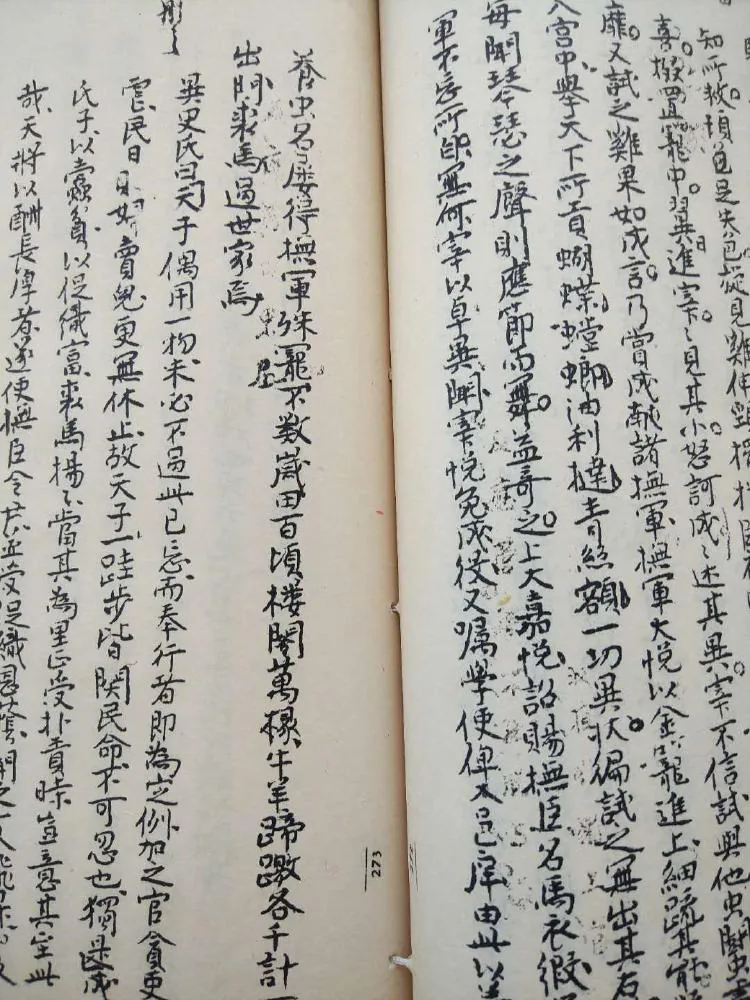 知所救頓足失色旋見雞伸頸擺撲
喜掇置籠中翼日進宰々見其小怒訶成々述其異宰不信試與他虫鬭虫
靡又試之雞果如成言乃賞成献諸撫軍撫軍大悦以金籠進上細疏其能
入宮中舉天下所貢蝴蝶螳螂油利撻青絲額一切異狀徧試之無出其右
每聞琴瑟之聲則應節而舞益奇之上大嘉悦詔賜撫臣名馬衣緞
軍不忘所自無何宰以卓異聞宰悦免成役又嘱學使俾入邑庠由此以善
養虫名屢得撫軍殊寵不数歲田百頃樓閣萬椽牛羊蹄躈各千計一
出門裘馬過世家焉
異史氏曰天子偶用一物未必不過此已忘而奉行者即為定例加之官貪吏
虐民日貼婦賣兒更無休止故天子一跬步皆関民命不可忽也獨是成
氏子以蠹貧以促織富裘馬揚々當其為里正受扑責時豈意其至此
哉天將以酬長厚者遂使撫臣令尹並受促織恩蔭聞之一人飛昇
273